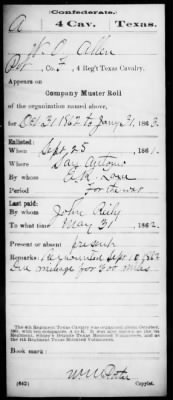 Confederate.
A 4 Cav. Texas.
W. O. Allen
Pvt, Co. F, 4 Reg't Texas Cavalry.
Appears on
Company Muster Roll
of the organization named above,
for Oct 31, 1862 to Jany 31, 1863.
Enlisted:
When Sept 25, 1861.
Where San Antonio
By whom
Period For the war
Last paid:
By whom John Reily
To what time May 31, 1862.
Present or absent present
Remarks: Remounted Sept. 10, 1862
Due mileage for 500 miles
The 4th Regiment Texas Cavalry was organized about October,
1861, with ten companies, A to K. It was also known as the 1st
Regiment, Sibley's Brigade Texas Mounted Volunteers, and as
the 4th Regiment Texas Mounted Volunteers.
Book mark:
(642) Copyist.